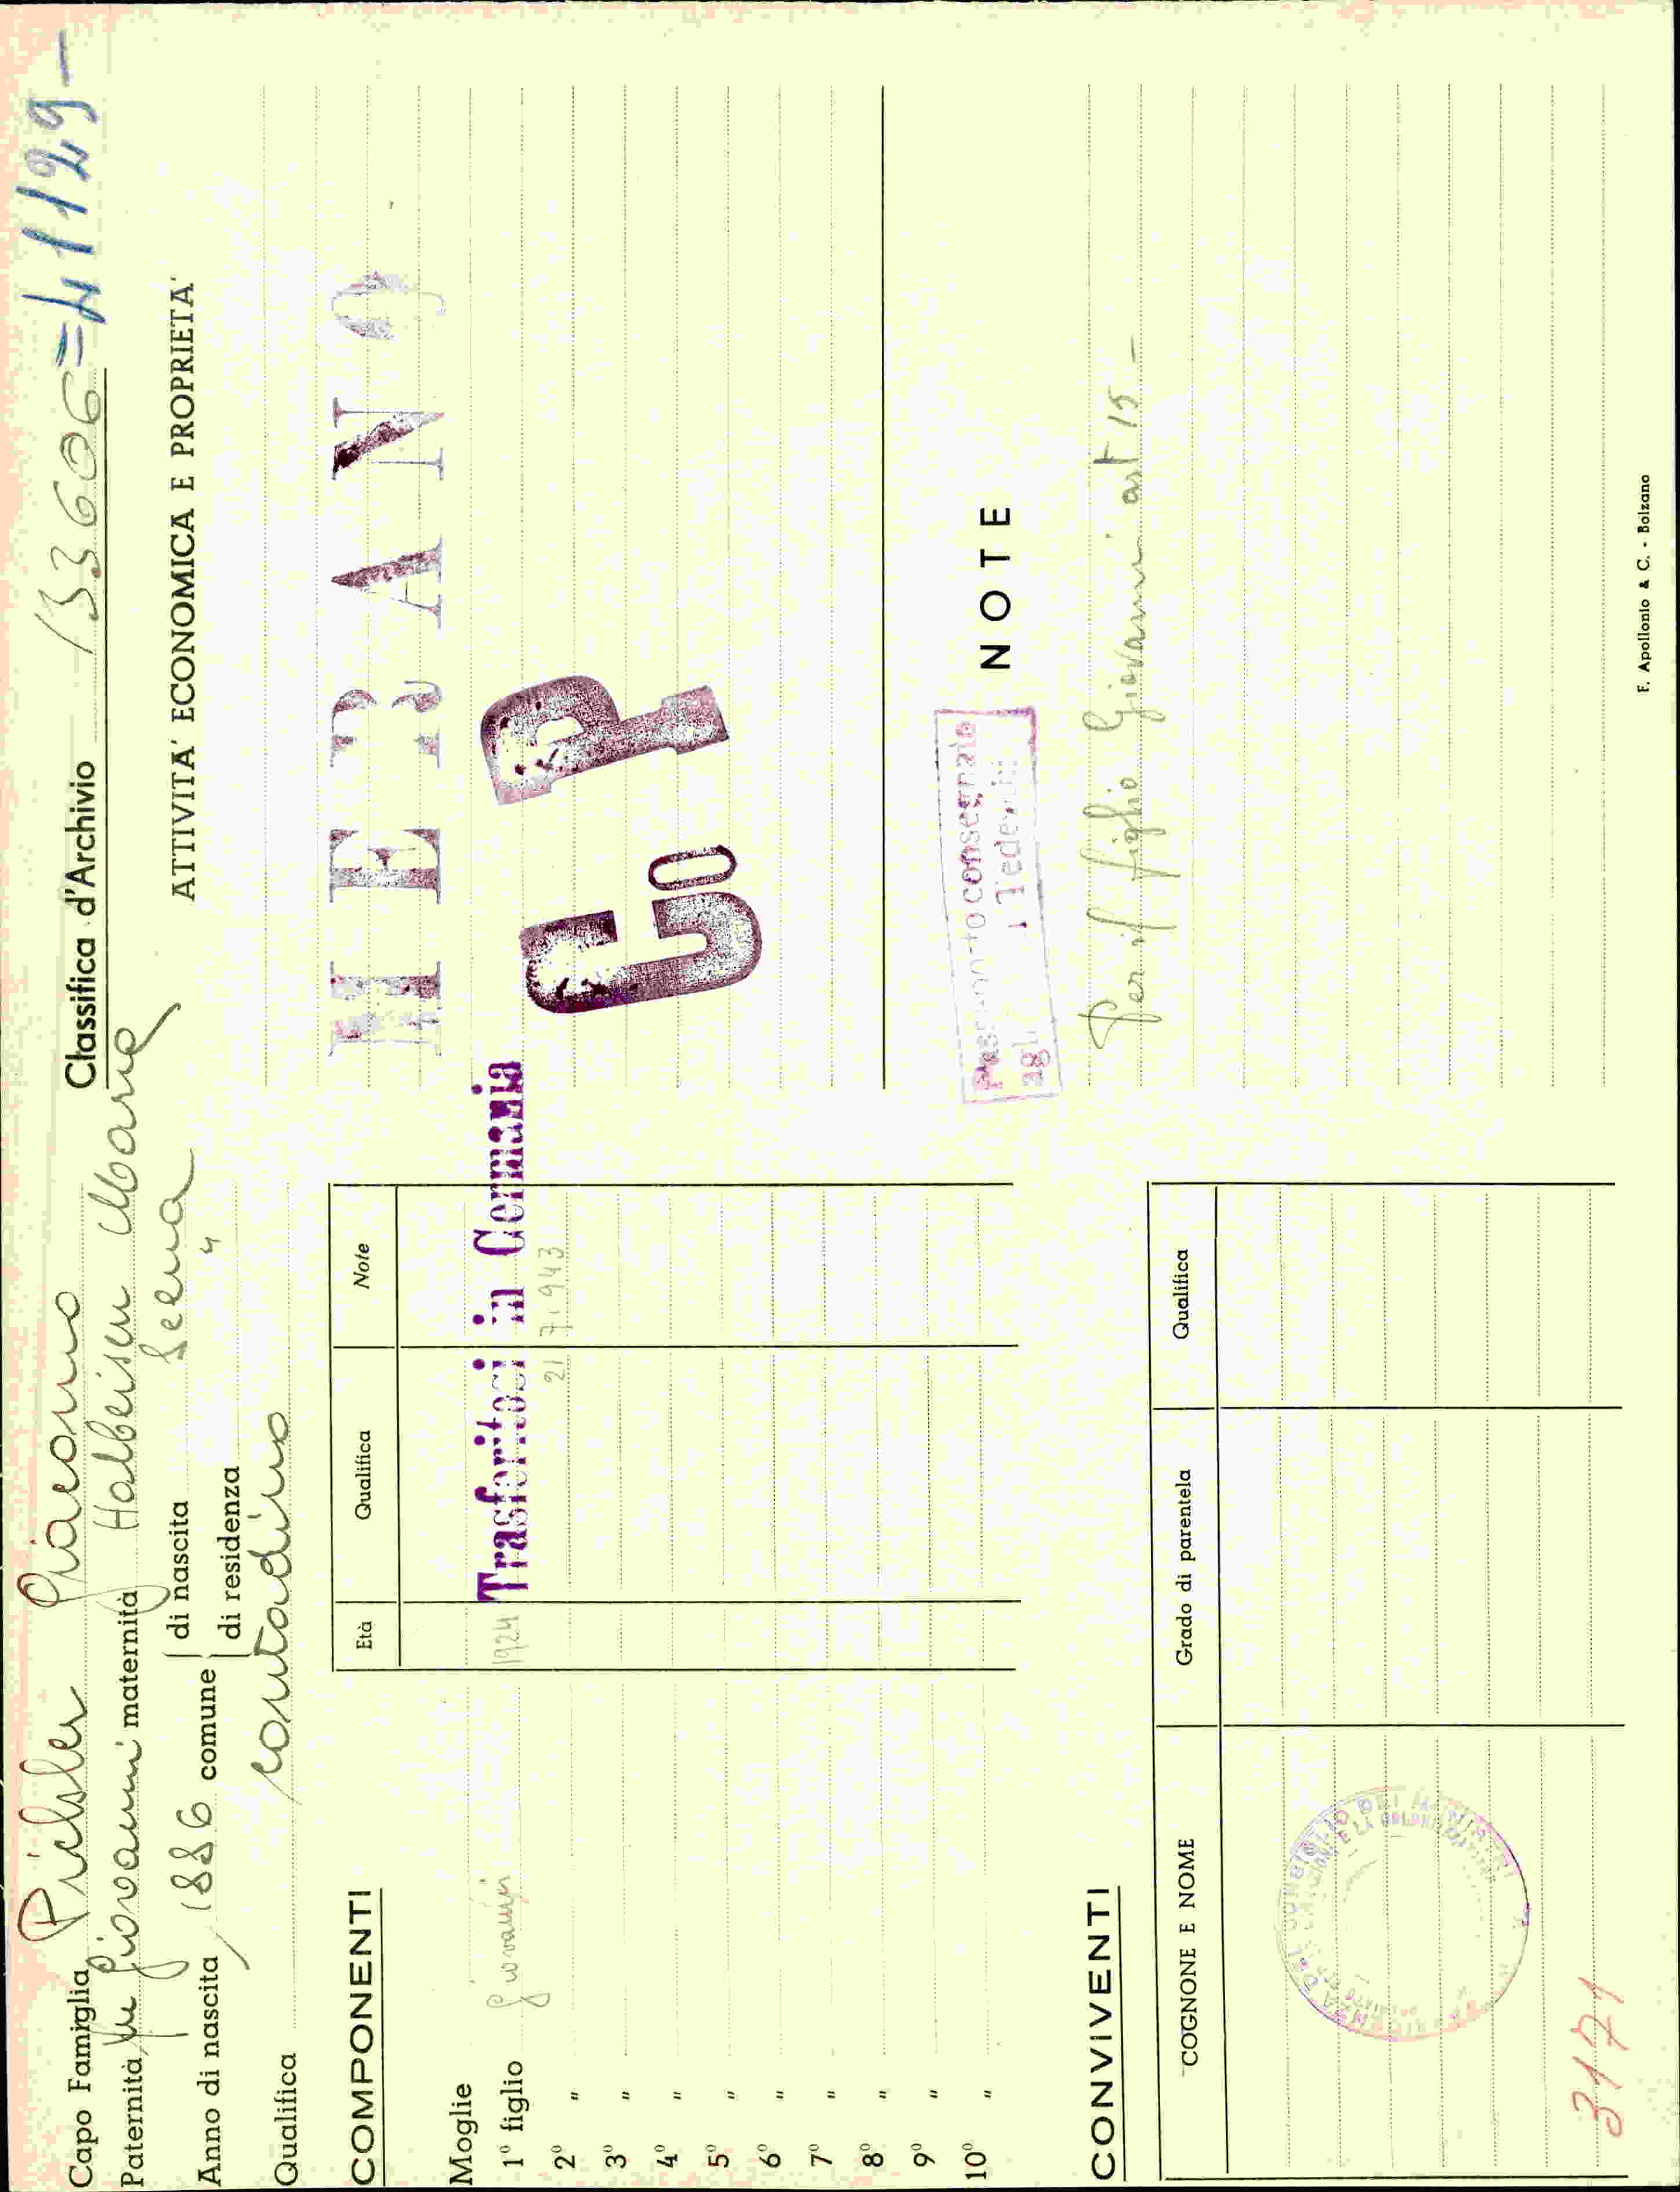 Capo Famiglia Pichler Giacomo
Paternità fu Giovanni maternità Halbeisen Maria
Anno di nascita 1886 comune di nascita Senna
di residenza "
Qualifica contadino
Classifica d'Archivio 133606=41129-
ATTIVITA' ECONOMICA E PROPRIETA'
MERANO
Co P
COMPONENTI
Età Qualifica Note
Moglie
1º figlio Giovanni 1924 Trasferitosi in Germania
2º " 21 7 1943
3º "
4º "
5º "
6º "
7º "
8º "
9º "
10º "
NOTE
Passaporto consegnato
agli Tedeschi
Per il figlio Giovanni art 15-
CONVIVENTI
COGNONE E NOME Grado di parentela Qualifica
3171
F. Apollonio & C. - Bolzano